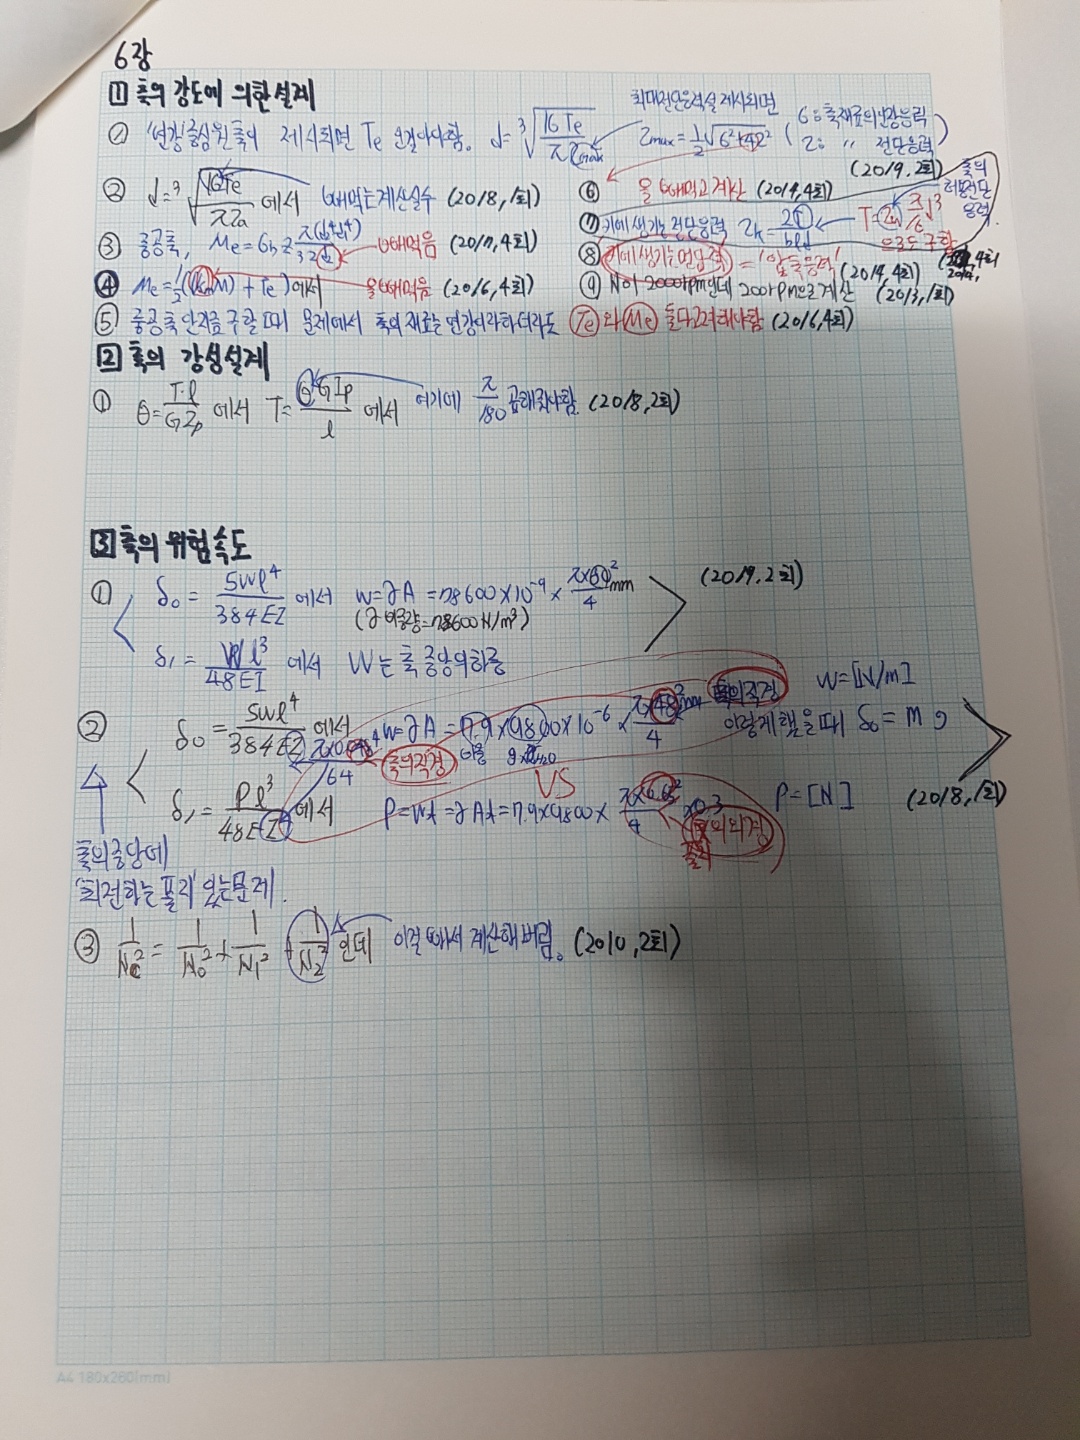 6장
1 축의 강도에 의한 설계
① '연강' '중심원'축이 제시되면 Te 인걸 알아야함. d=³√(16Te/πτmax)
최대전단응력설 제시되면
τmax=½√(σ²+4τ²) (σ: 축재료의 인장응력
τ: 〃 전단응력)
(2019. 2회)
② d=³√(16Te/πτa) 에서 빼먹는 계산실수 (2018, 1회)
③ 중공축, Me=σb×π( )/32 빼먹음 (2017, 4회)
④ Me=½((km M)+Te)에서 을 빼먹음 (2016, 4회)
⑤ 중공축 안지름 구할때 문제에서 축의 재료는 연강이라 하더라도 Te 와 Me 둘다 고려해야함 (2016, 4회)
⑥ 을 빼먹고 계산 (2014, 4회)
⑦ 키에 생기는 전단응력 τk=2T/bld T=τa π/16 d³ 으로도 구함
축의 허용전단응력
⑧ 키에 생기는 면압력 = '압축응력' (2014, 4회)
⑨ N이 2000rpm인데 200rpm으로 계산 (2013, 1회)
2 축의 강성설계
① θ=T·l/GIp 에서 T=θGIp/l 에서 여기에 π/180 곱해줘야함. (2018, 2회)
3 축의 위험속도
① δ₀=5wl⁴/384EI 에서 w=γA=78600×10⁻⁹×π×60²/4 mm (2019. 2회)
(γ 비중량=78600N/m³)
δ₁=Wl³/48EI 에서 W는 축 중앙의 하중
② δ₀=5wl⁴/384EI 에서 w=γA=7.9×9800×10⁻⁶×π×48²/4 mm 축의 직경 w=[N/m]
이렇게 했을때 δ₀=m
64 축의직경 비중
VS
δ₁=Pl³/48EI 에서 P=wt=γAt=7.9×9800×π×0.6²/4×0.3 P=[N] (2018, 1회)
풀리의 외경
축의 중앙에
'회전하는 풀리' 있는 문제.
③ 1/Nc²=1/N₀²+1/N₁²+1/N₂² 인데 이걸 빼서 계산해버림. (2010, 2회)
A4 180x260(mm)